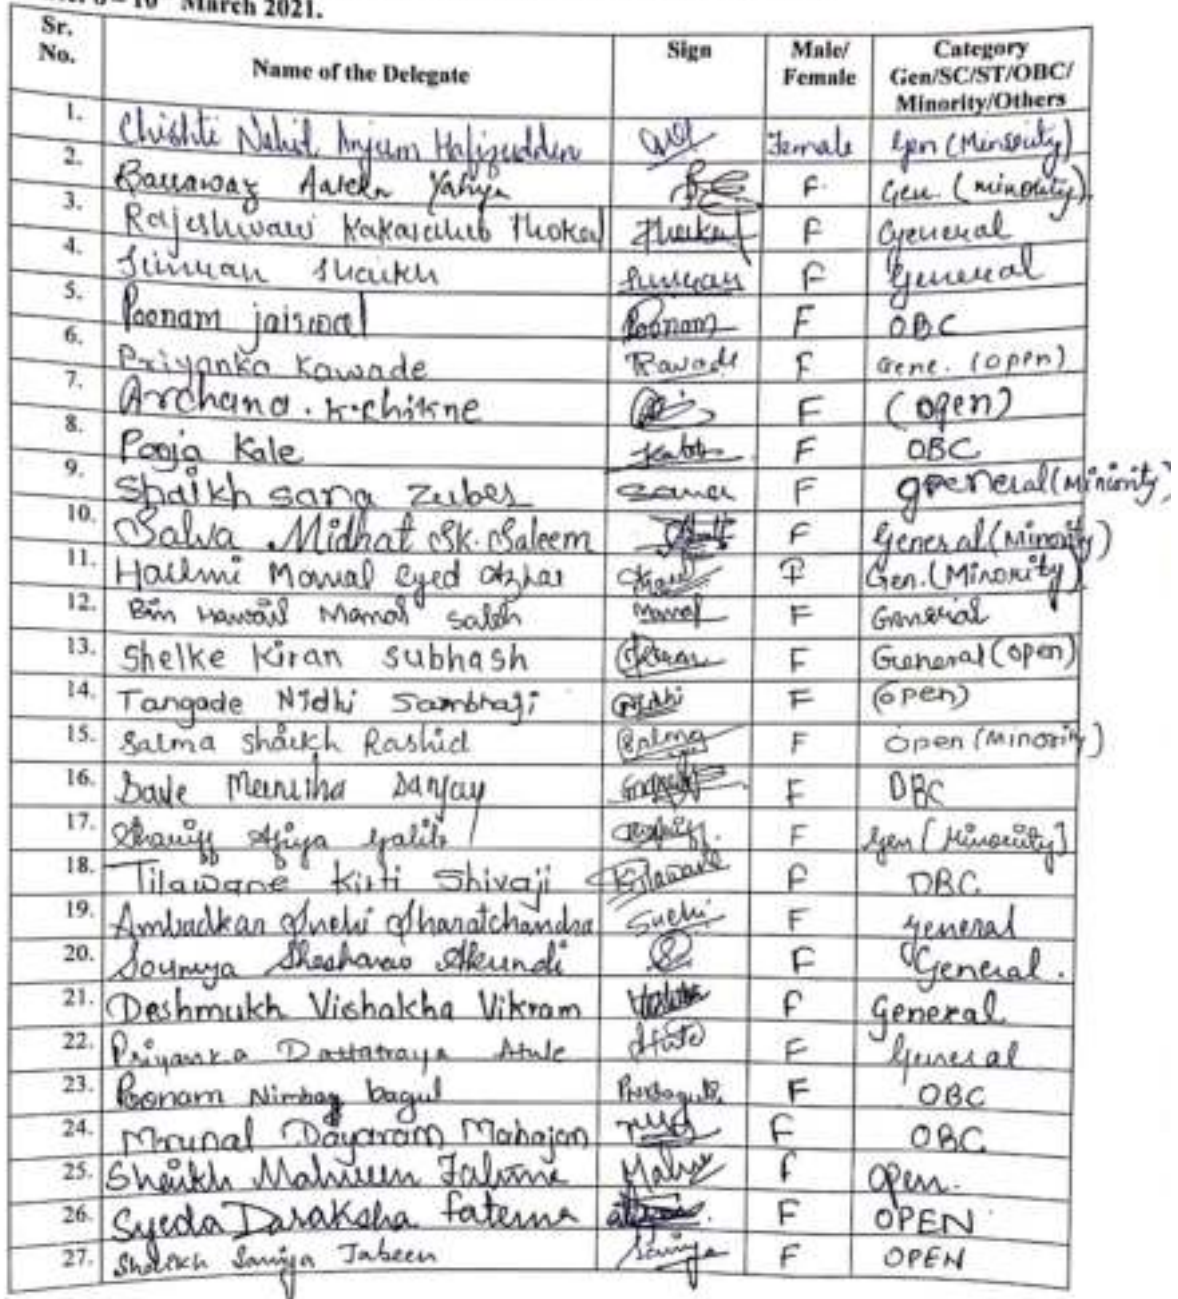 8 – 10 March 2021.
Sr. No. Name of the Delegate Sign Male/ Female Category Gen/SC/ST/OBC/ Minority/Others
1. Chishti Nahid Anjum Hafizuddin Female Gen (Minority)
2. Yahya F. Gen. (minority)
3. Rajeshwari Kakasaheb Thokal Thokal F General
4. Simran Shaikh Simran F General
5. Poonam jaiswal Poonam F OBC
6. Priyanka Kawade Kawade F Gene. (open)
7. Archana . K. Chikne F (open)
8. Pooja Kale F OBC
9. Shaikh Sana Zuber Sana F general (Minority)
10. Salva Midhat Sk. Saleem F General (Minority)
11. Hashmi Syed Azhar F Gen. (Minority)
12. Bin Manal Saleh Manal F General
13. Shelke Kiran Subhash Kiran F General (open)
14. Tangade Nidhi Sambhaji Nidhi F (open)
15. Salma Shaikh Rashid Salma F Open (Minority)
16. Sanjay F OBC
17. Shariff Afiya Galib F Gen (Minority)
18. Tilawane Kirti Shivaji Tilawane F OBC
19. Ambadkar Suchi Sharatchandra Suchi F general
20. Soumya Shesharao Akundi F General.
21. Deshmukh Vishakha Vikram F General
22. Priyanka Dattatraya Atule F General
23. Poonam Nimbaj bagul F OBC
24. Mrunal Dayaram Mahajan F OBC
25. Shaikh Mahveen Fatima F Open.
26. Syeda Daraksha fatema F OPEN
27. Shaikh Saniya Jabeen Saniya F OPEN